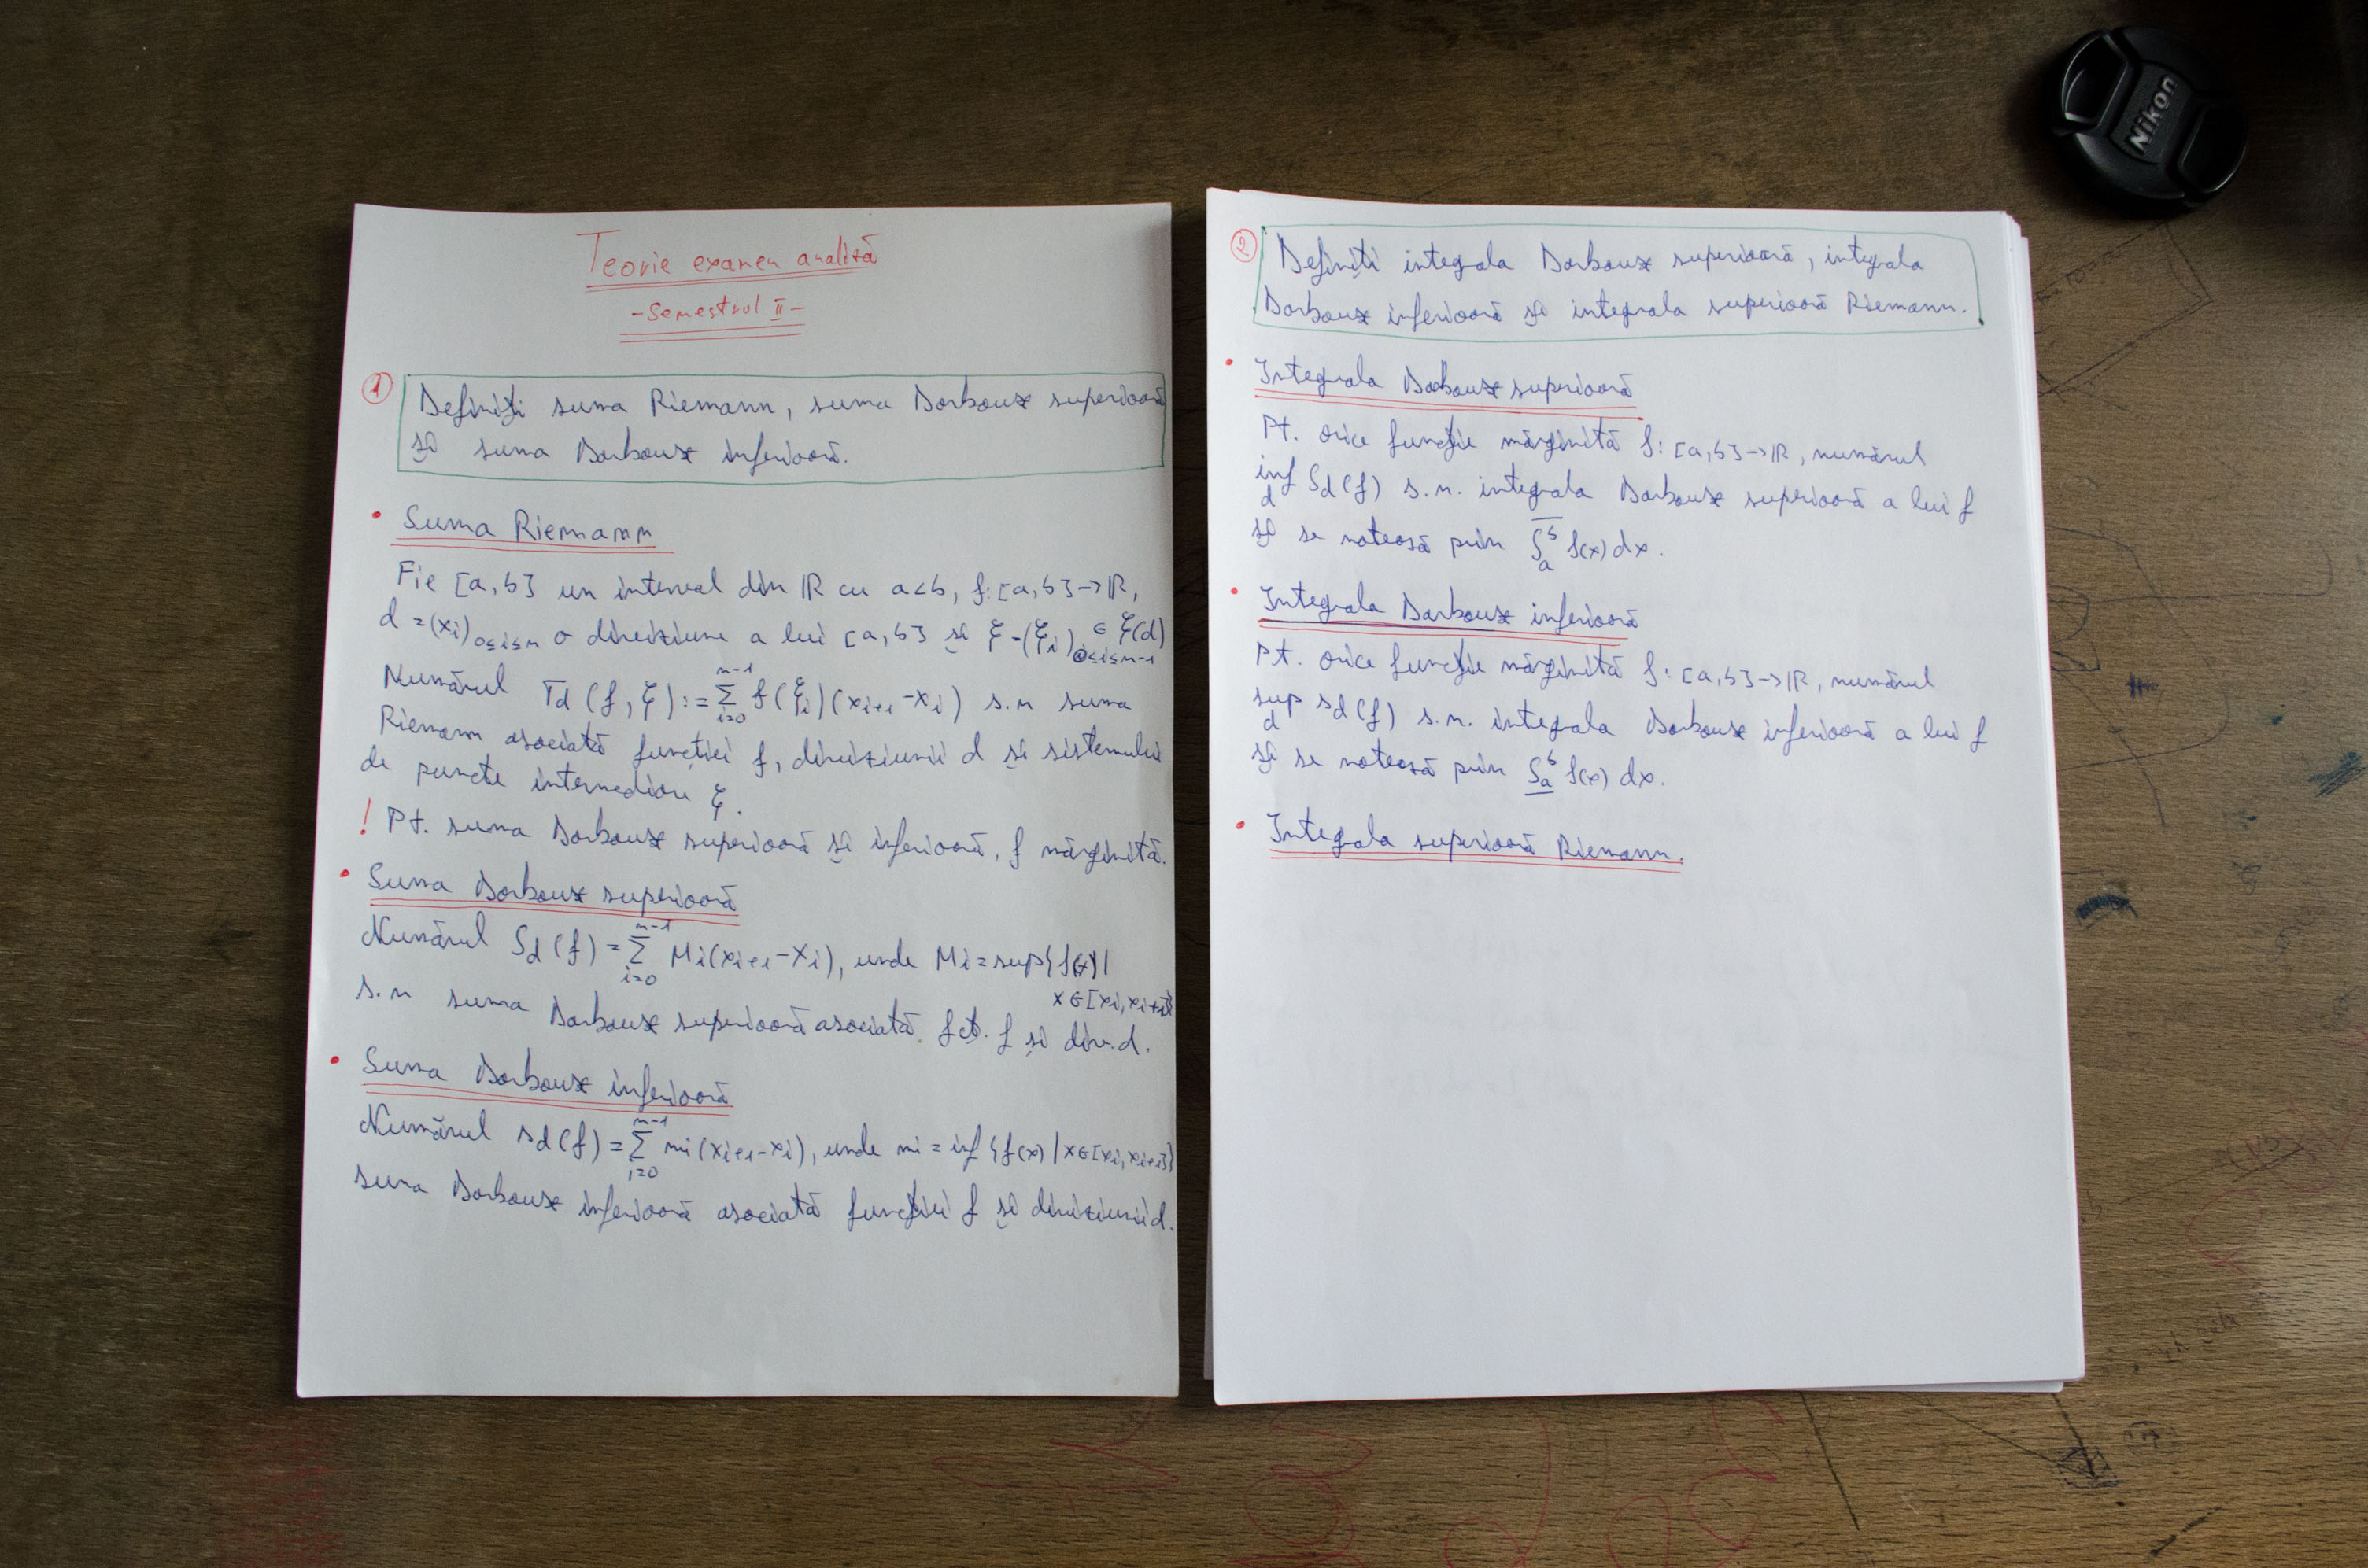 Teorie examen analiză
-Semestrul II-
1 Definiți suma Riemann, suma Darboux superioară
și suma Darboux inferioară.
• Suma Riemann
Fie [a,b] un interval din ℝ cu a<b, f:[a,b]→ℝ,
d=(xi)0≤i≤n o diviziune a lui [a,b] și ξ=(ξi)0≤i≤n-1 ∈ ξ(d)
Numărul Td(f,ξ):=∑_{i=0}^{n-1} f(ξi)(xi+1-xi) s.n suma
Riemann asociată funcției f, diviziunii d și sistemului
de puncte intermediare ξ.
! Pt. suma Darboux superioară și inferioară, f mărginită.
• Suma Darboux superioară
Numărul Sd(f)=∑_{i=0}^{n-1} Mi(xi+1-xi), unde Mi=sup{f(x)|
x∈[xi,xi+1]}
s.n suma Darboux superioară asociată fct. f și div.d.
• Suma Darboux inferioară
Numărul sd(f)=∑_{i=0}^{n-1} mi(xi+1-xi), unde mi=inf{f(x)|x∈[xi,xi+1]}
suma Darboux inferioară asociată funcției f și diviziunii d.
2 Definiți integrala Darboux superioară, integrala
Darboux inferioară și integrala superioară Riemann.
• Integrala Darboux superioară
Pt. orice funcție mărginită f:[a,b]→ℝ, numărul
inf_d Sd(f) s.n. integrala Darboux superioară a lui f
și se notează prin ∫̅_a^b f(x)dx.
• Integrala Darboux inferioară
Pt. orice funcție mărginită f:[a,b]→ℝ, numărul
sup_d sd(f) s.n. integrala Darboux inferioară a lui f
și se notează prin ∫̲_a^b f(x)dx.
• Integrala superioară Riemann.
Nikon